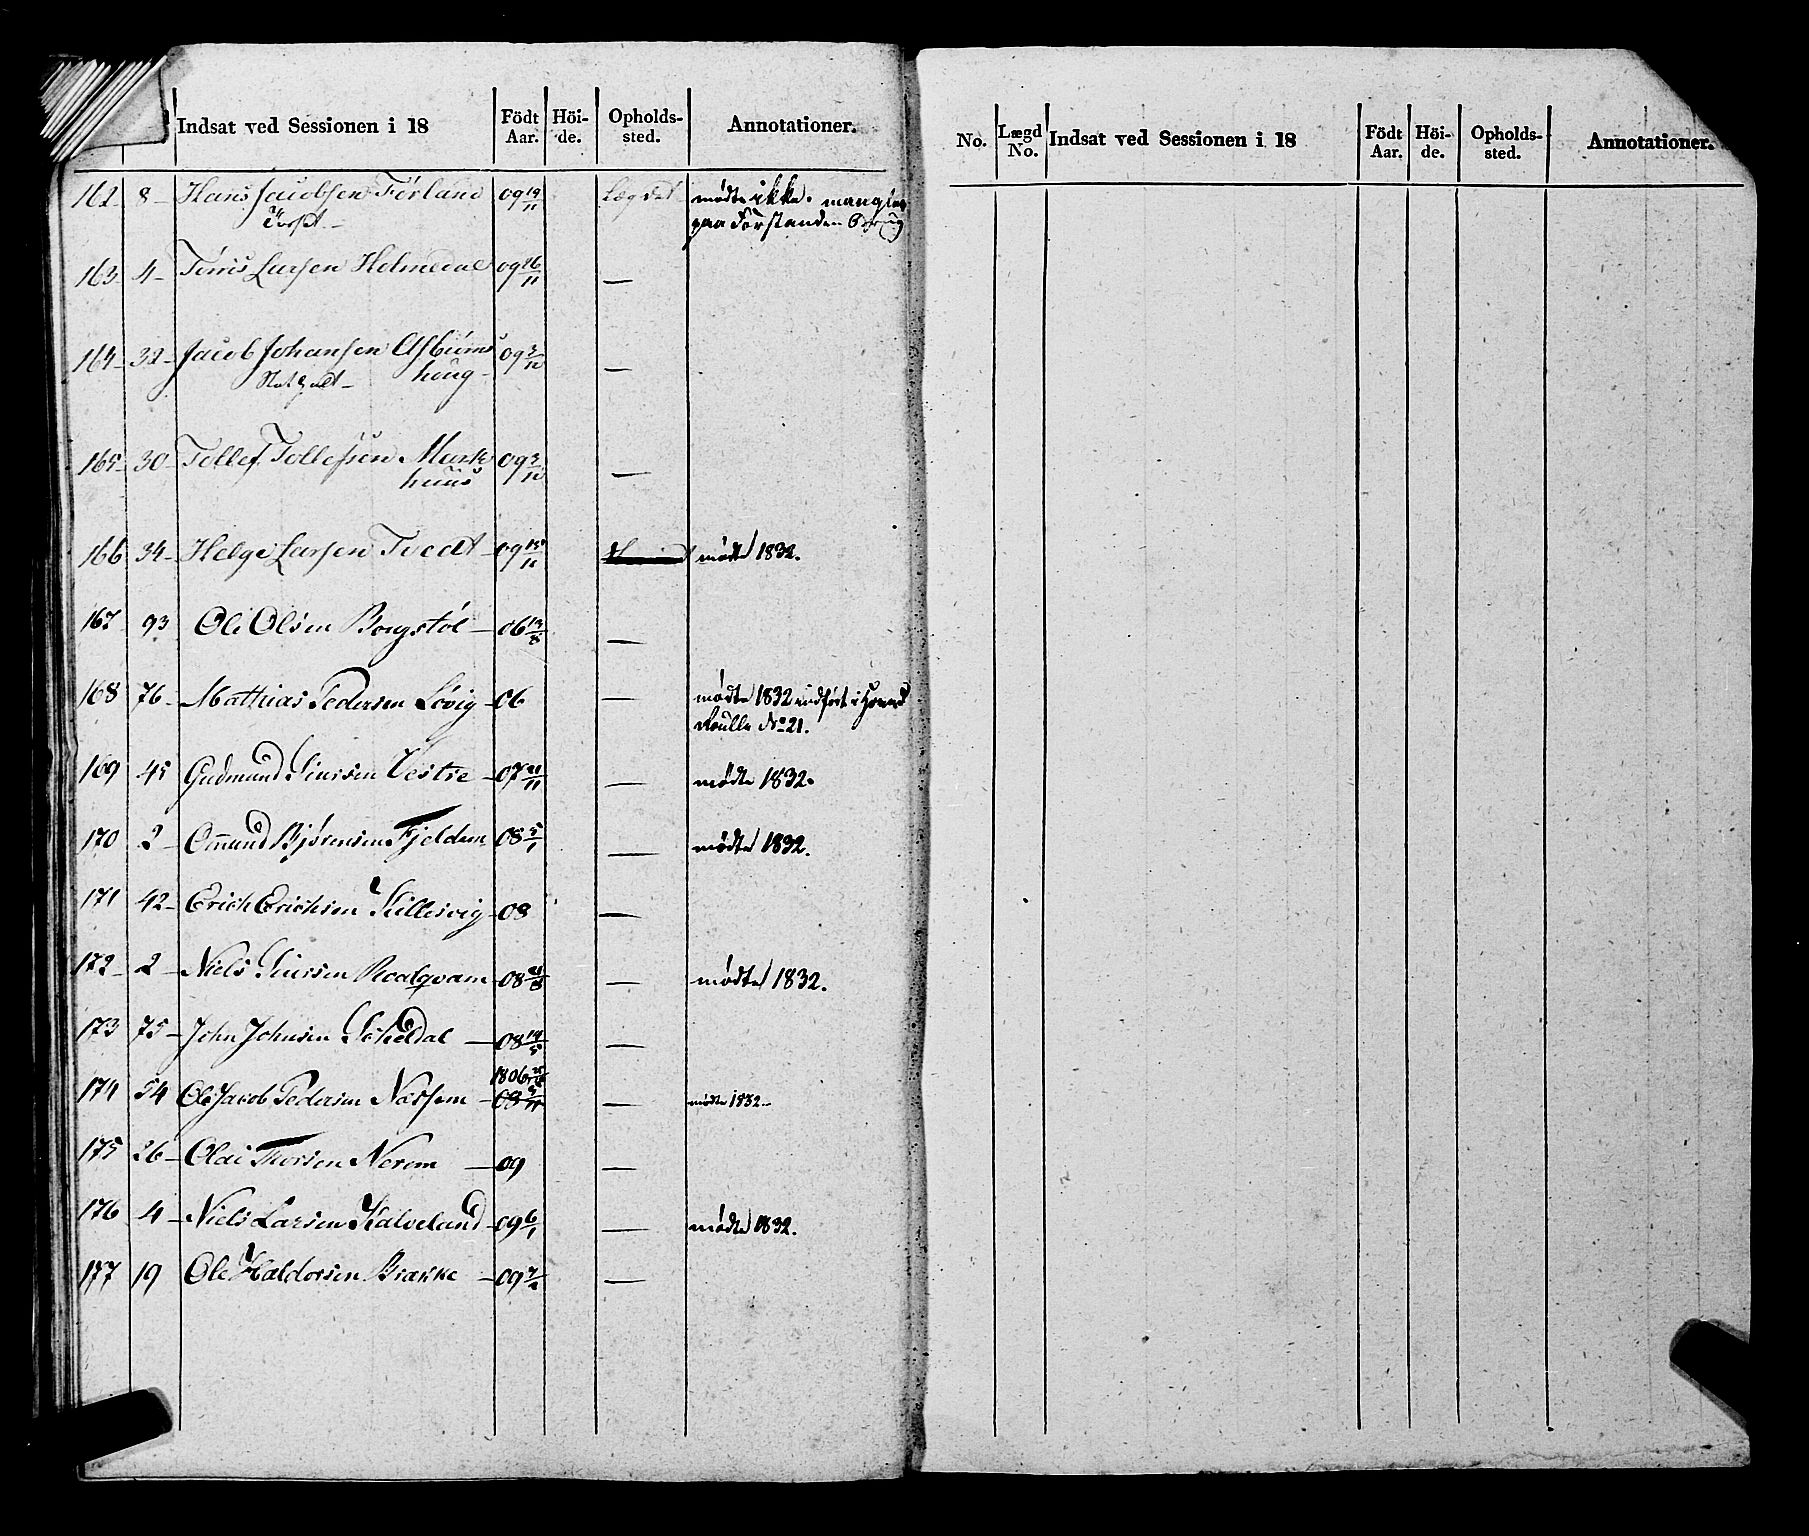 Indsat ved Sessionen i 18 Födt Aar. Höi-de. Opholds-sted. Annotationer.
162 8 - Hans Jacobsen Förland 09 19/11 Lægdet mödte ikke. mangler
paa Forstanden
163 4 - Tönis Larsen Holmedal 09 26/11 —
164 32 - Jacob Johansen Asbiörns 09 3/10 —
houg -
165 30 - Tollef Tollefsen Mark 09 3/10 —
huus
166 34 - Helge Larsen Tvedt - 09 15/11 mödte 1832.
167 93 Ole Olsen Borgstöl — 06 19/8 —
168 76 - Mathias Pedersen Lövig - 06 — mödte 1832 indfört i
Roulle No 21.
169 45 Gudmund Siursen Vestre - 07 21/11 — mödte 1832.
170 2 - Omund Bjørensen Fjeldem 08 5/1 — mödte 1832.
171 42 - Erich Erichsen Killesvig - 08 —
172 - 2 - Niels Siursen Roalqvam - 08 21/8 — mödte 1832.
173 75 - John Johnsen Sokedal — 08 14/5 —
1806
174 54 Ole Jacob Pedersen Næssem - 08 — mödte 1832 -
175 26 - Olai Thorsen Nerem — 09 —
176 4 - Niels Larsen Kalveland - 09 6/1 — mödte 1832.
177 19 Ole Haldorsen Brække — 09 —
No. Lægd No. Indsat ved Sessionen i 18 Födt Aar. Höi-de. Opholds-sted. Annotationer.